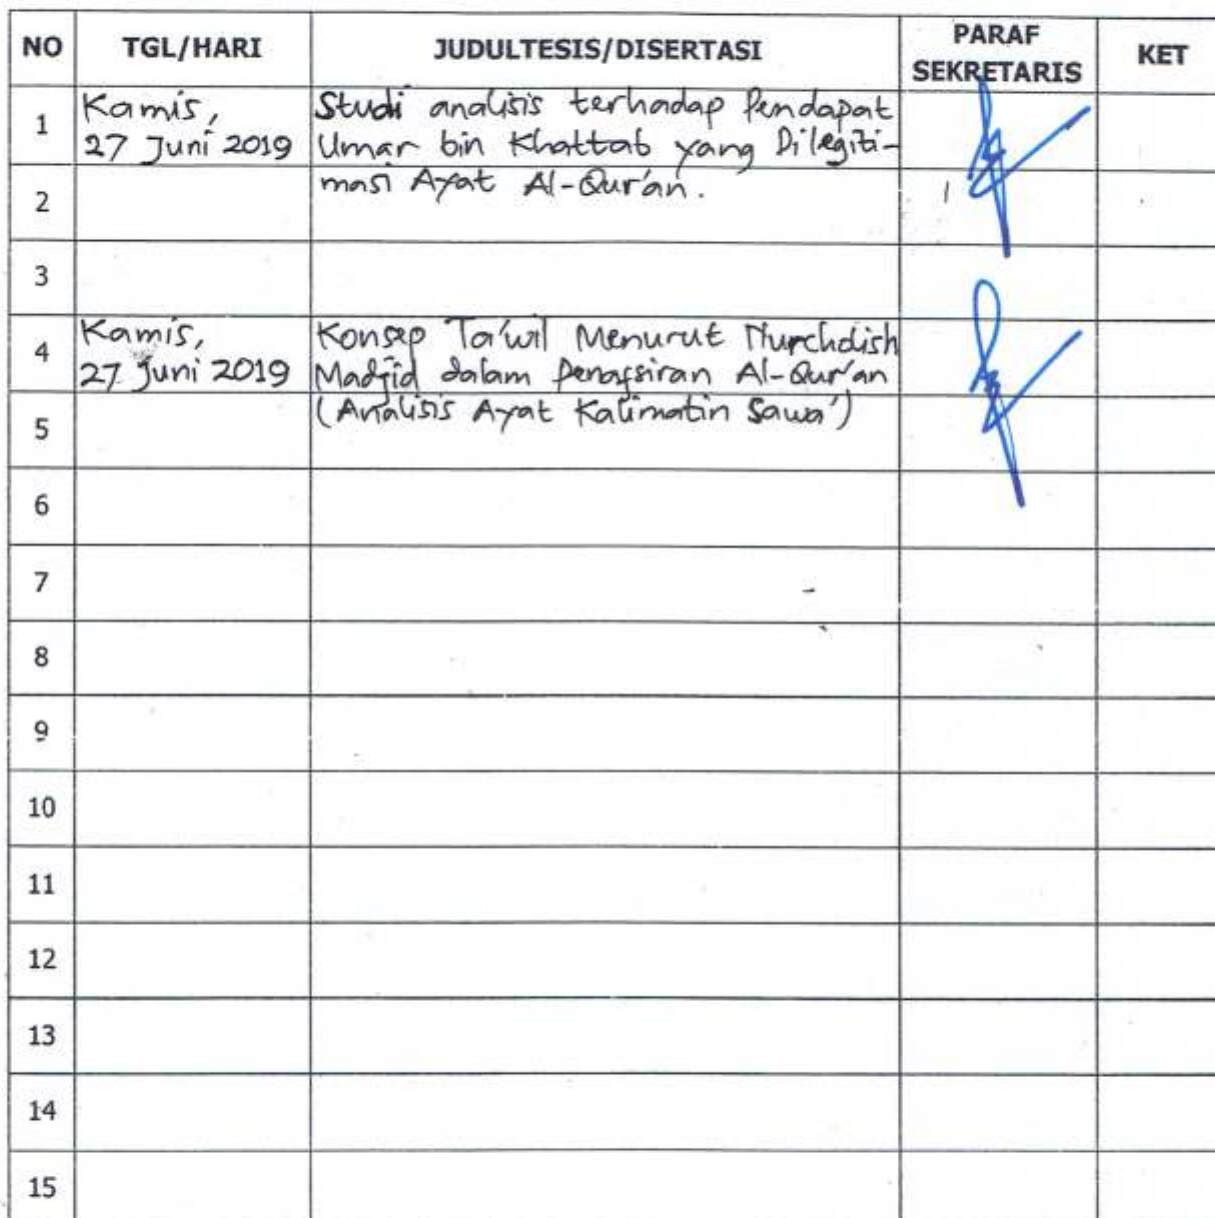 NO TGL/HARI JUDULTESIS/DISERTASI PARAF SEKRETARIS KET
1 Kamis, Studi analisis terhadap Pendapat
27 Juni 2019 Umar bin Khattab yang Dilegiti-
2 masi Ayat Al-Qur'an.
3
4 Kamis, Konsep Ta'wil Menurut Nurcholish
27 Juni 2019 Madjid dalam Penafsiran Al-Qur'an
5 (Analisis Ayat Kalimatin Sawa')
6
7
8
9
10
11
12
13
14
15